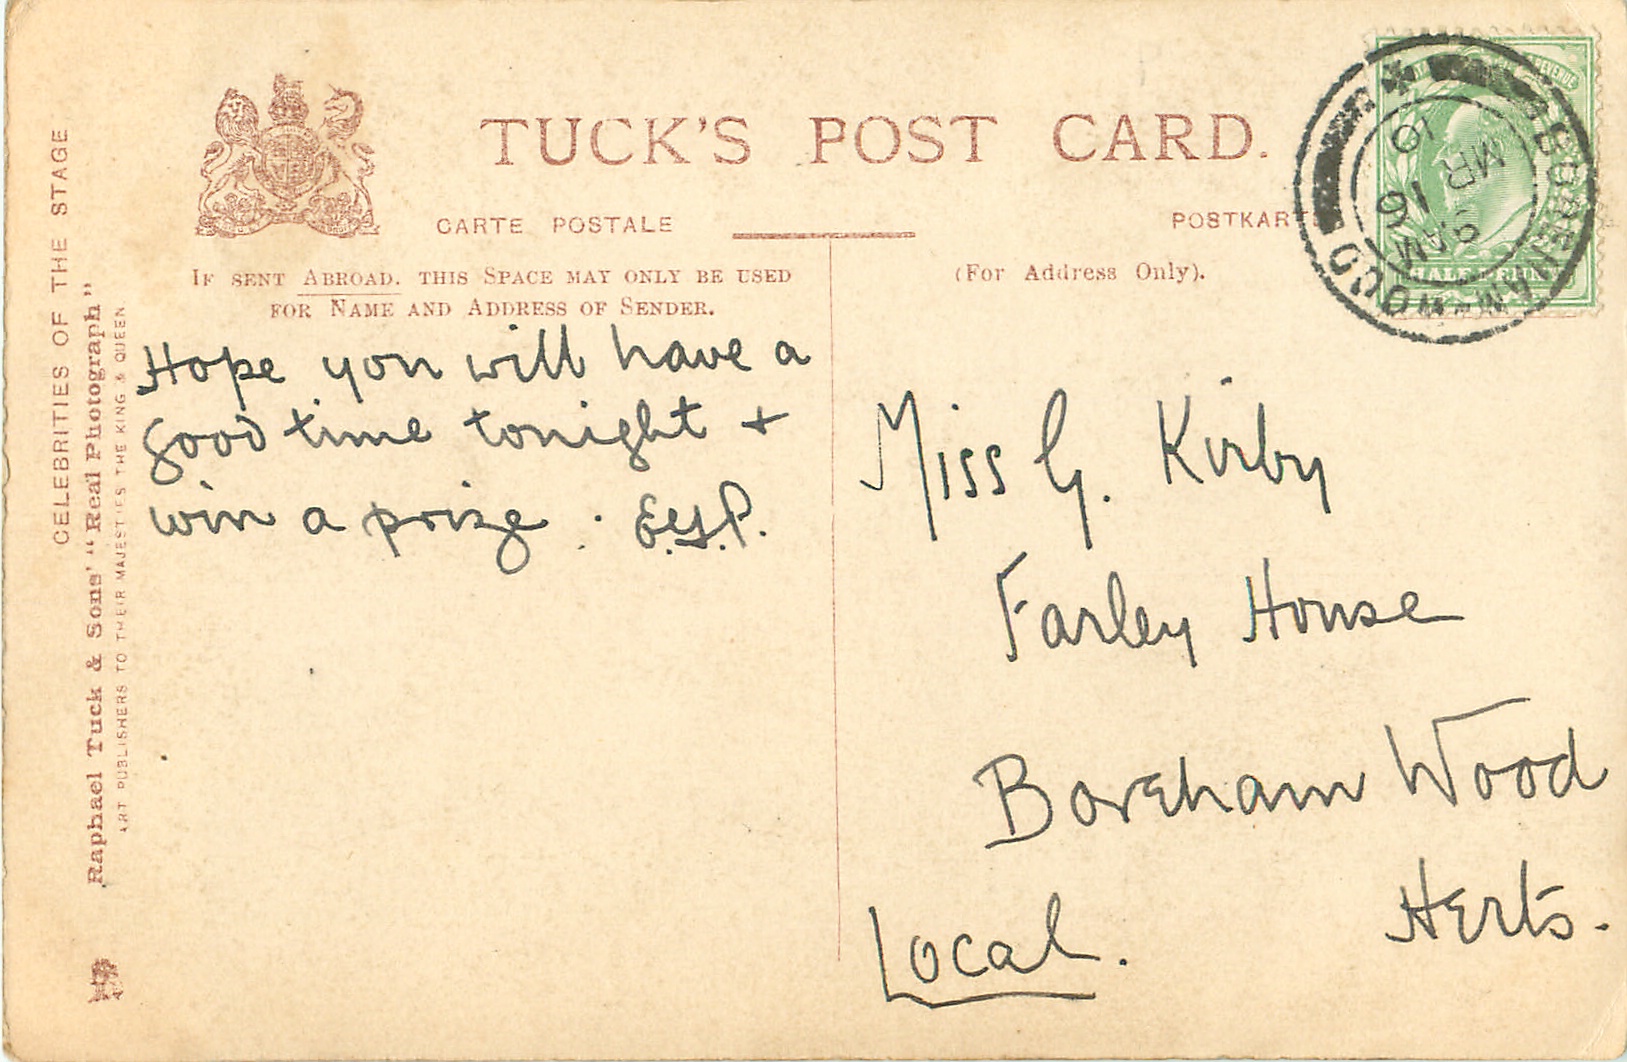 TUCK'S POST CARD.
CARTE POSTALE
POSTKART
IF SENT ABROAD. THIS SPACE MAY ONLY BE USED
FOR NAME AND ADDRESS OF SENDER.
(For Address Only).
Hope you will have a
good time tonight +
win a prize. E.G.P.
Miss G. Kirby
Farley House
Boreham Wood
Herts.
Local.
CELEBRITIES OF THE STAGE
Raphael Tuck & Sons' "Real Photograph"
ART PUBLISHERS TO THEIR MAJESTIES THE KING & QUEEN.
REVENUE
HALFPENNY
BOREHAM WOOD
AM
MR 16
10